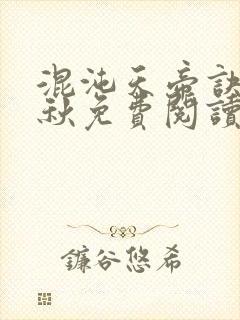 混沌天帝訣
秋免費閱讀
鐮谷悠希